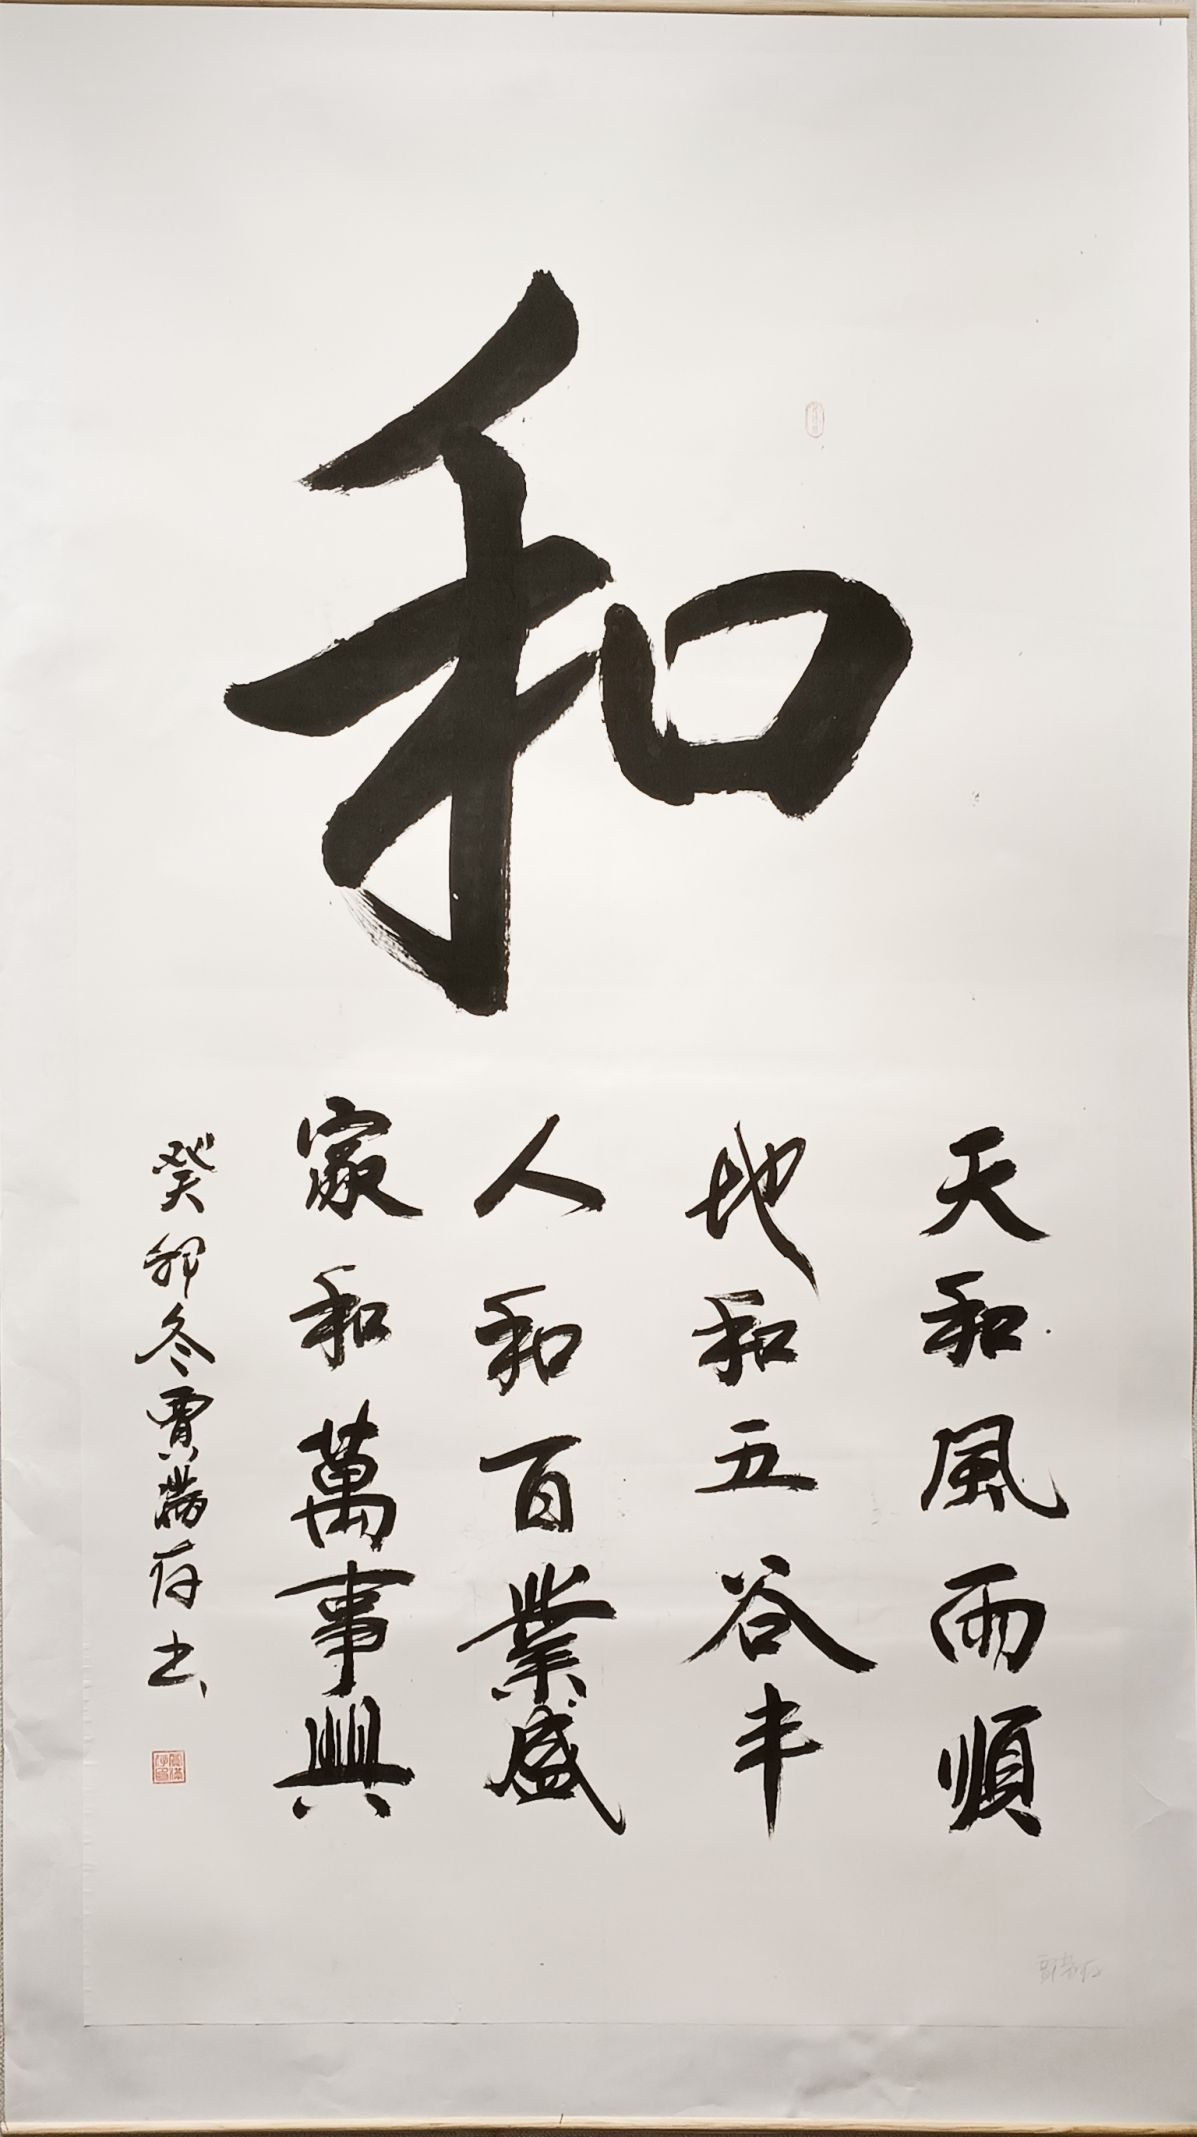 和
天和風雨順
地和五谷丰
人和百業盛
家和萬事興
癸卯冬賈满存书